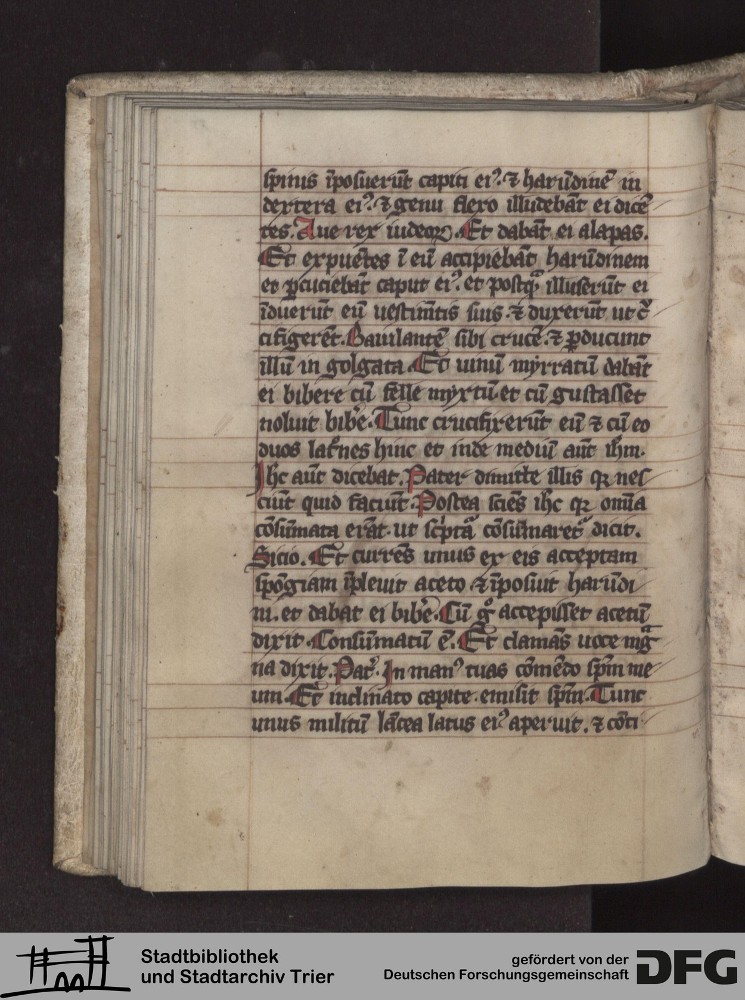 spinis īposuerūt capiti eiꝰ. ⁊ harūdinē in
dextera eiꝰ. ⁊ genu flexo illudebāt ei dicē
tes. Aue rex iudeoꝝ. Et dabāt ei alapas.
Et expuētes ī eū accipiebāt harūdinem
et ꝑcuciebāt caput eiꝰ. et postqᷓ illuserūt ei
īduerūt eū uestimtis suis ⁊ duxerūt ut c̄
cifigerēt. Bauilantē sibi crucē ⁊ ꝑducunt
illū in golgata. Et uinū myrratū dabāt
ei bibere cū felle myxtū et cū gustasset
noluit bibe. Tunc crucifixerūt eū ⁊ cū eo
duos lat̄nes hinc et inde mediū aūt ih̄m.
Ih̄c aūt dicebat. Pater dimitte illis qꝛ nes
ciūt quid faciūt. Postea sciēs ih̄c qꝛ omīa
cōsūmata erāt. ut sc̄ptᷓa cōsūmaret᷑ dicit.
Sicio. Et currēs unus ex eis acceptam
spōgiam īpleuit aceto ⁊ īposiut harūdi
ni. et dabat ei bibe. Cū gͦ accepisset acetū
dixit. Consūmatū ē. Et clamās uoce mgᷓ
na dixit. Pat̄. In manꝰ tuas cōmēdo sp̄m me
um. Et inclinato capite emisit sp̄m. Tunc
unus militū lācea latus eiꝰ aperuit. ⁊ cōti
Stadtbibliothek
und Stadtarchiv Trier
gefördert von der
Deutschen Forschungsgemeinschaft
DFG